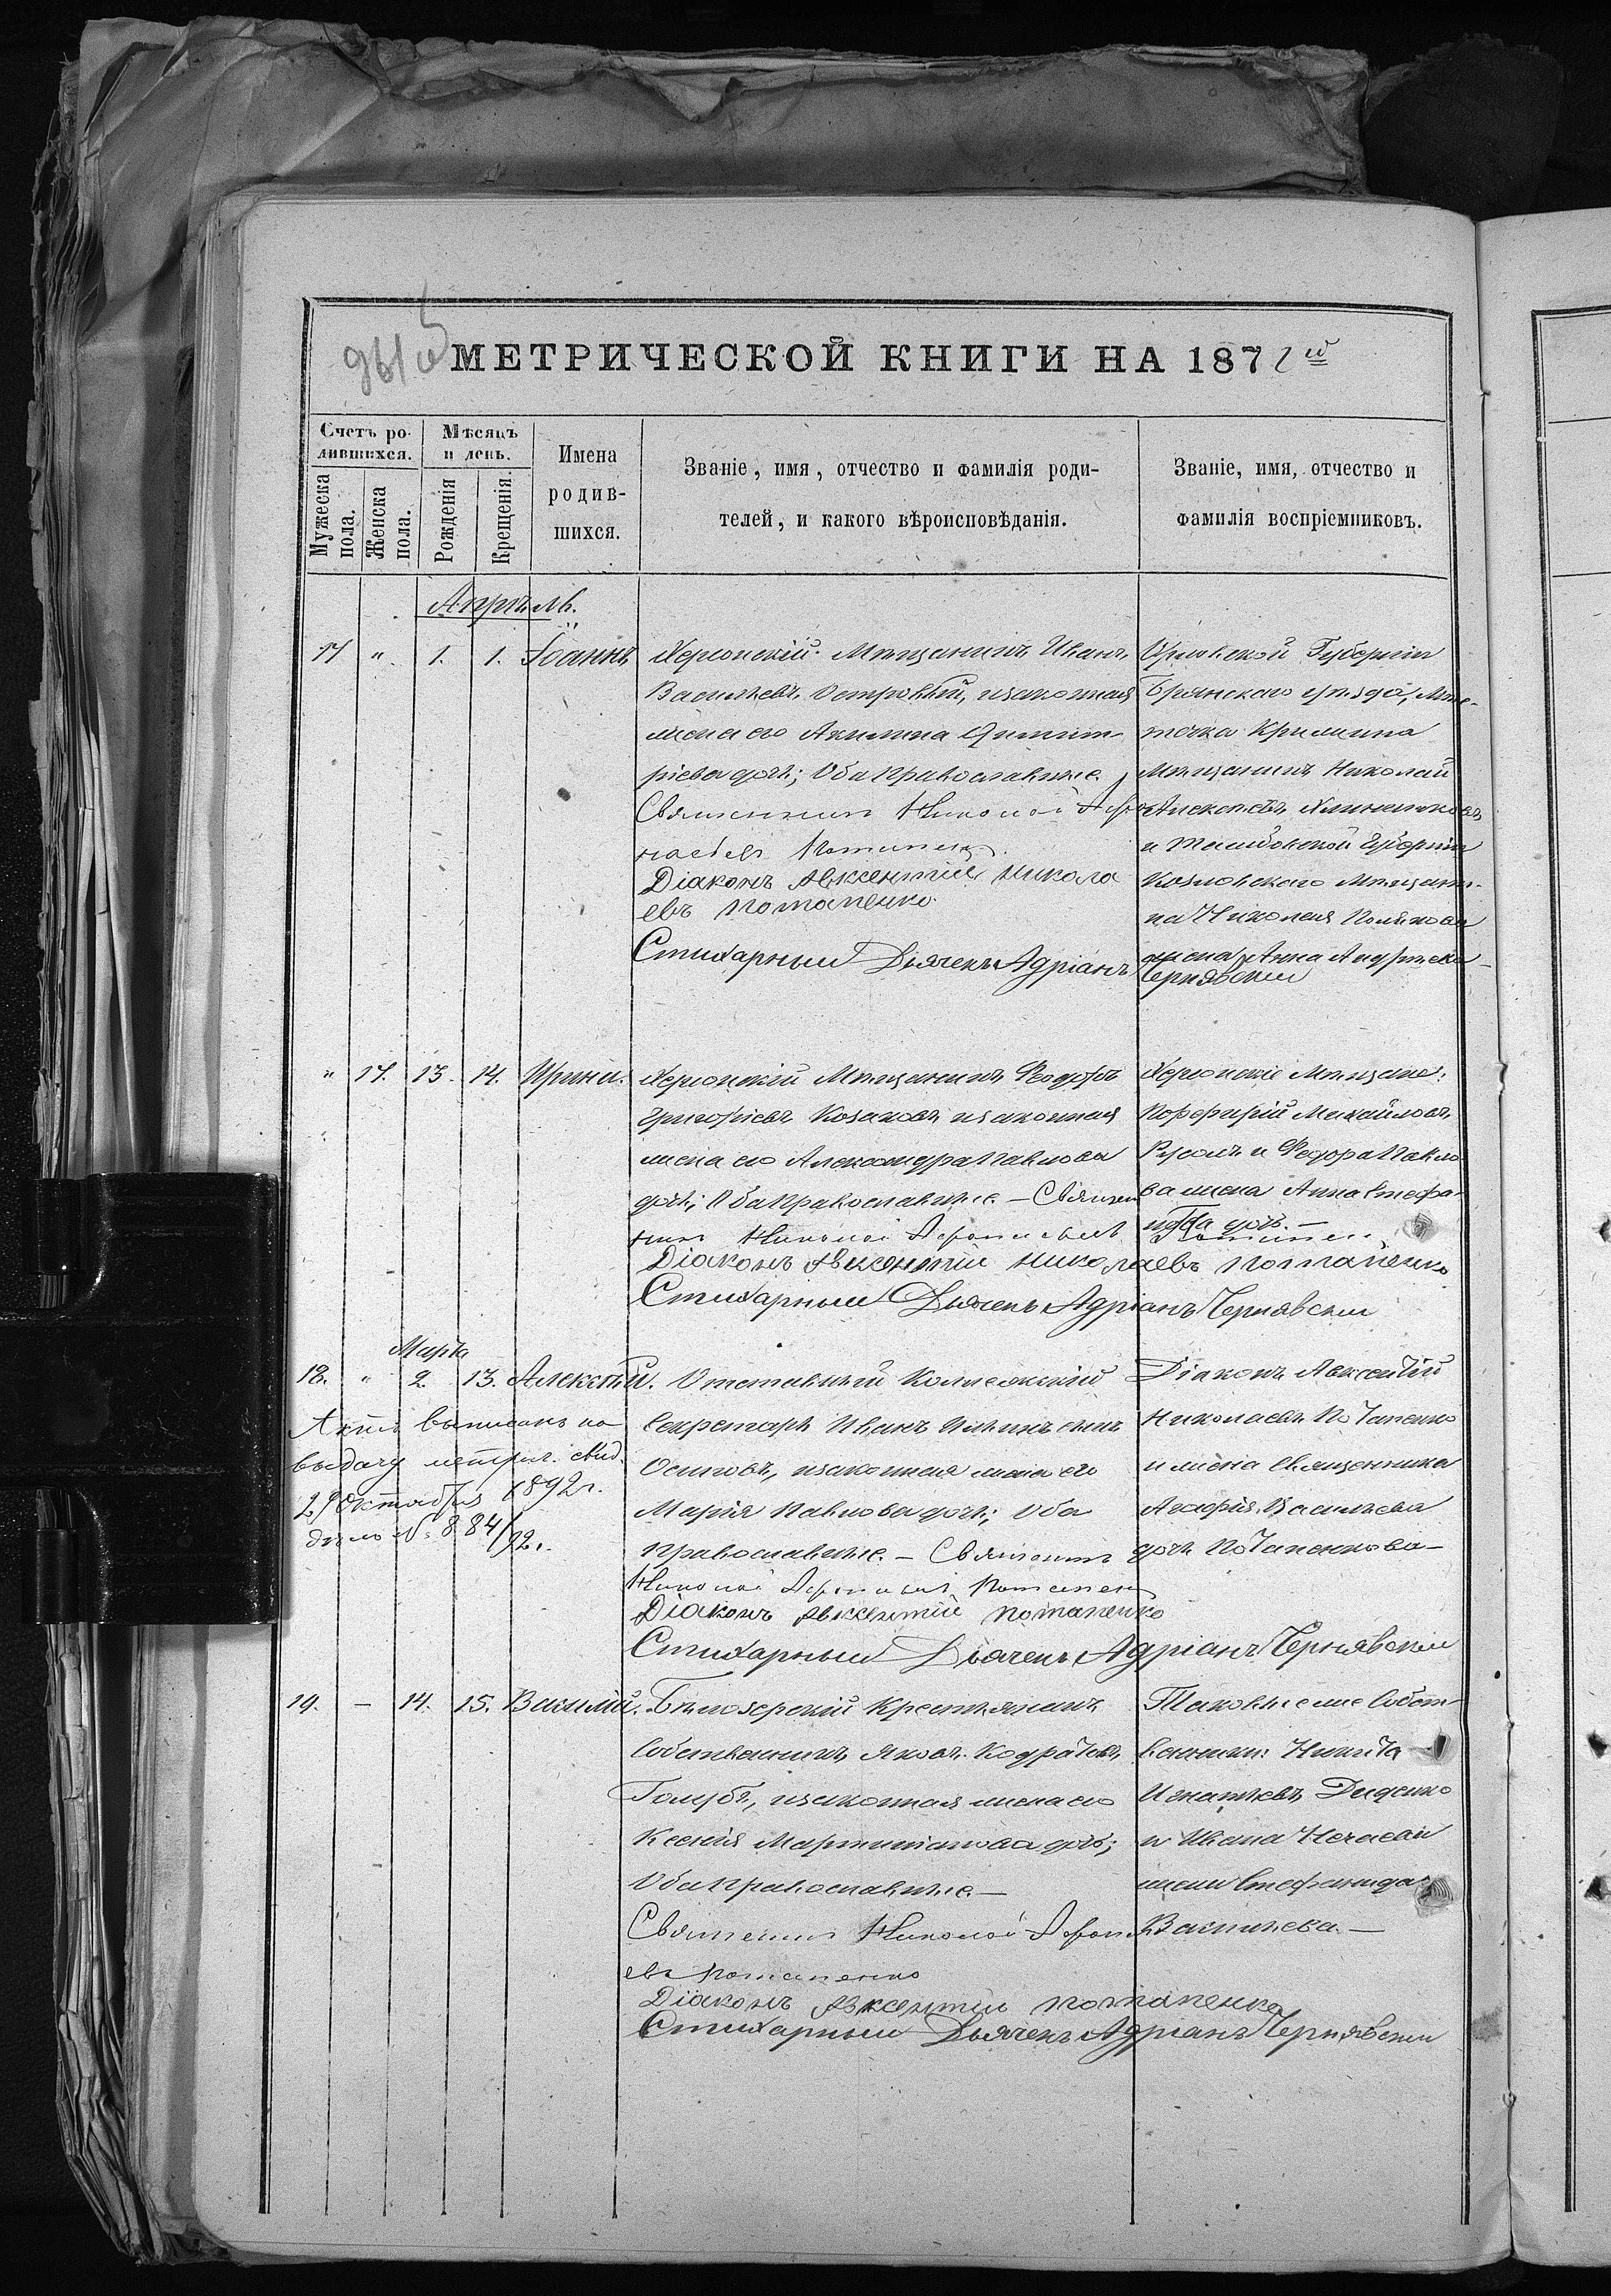 МЕТРИЧЕСКОЙ КНИГИ НА 1872 й
Счетъ родившихся.
Мѣсяцъ и день.
Имена родившихся.
Званіе, имя, отчество и фамилія родителей, и какого вѣроисповѣданія.
Званіе, имя, отчество и фамилія воспріемниковъ.
Мужеска пола.
Женска пола.
Рожденія
Крещенія.
Апрѣль.
17 " 1. 1. Іоаннъ
Херсонскій Мѣщанинъ Иванъ
Васильевъ Островый, и законная
жена его Акилина Димит-
ріева дочь; Оба православные.
Священникъ Николай
Діаконъ Авксентій Никола
евъ Потапенко.
Стихарный Дьячекъ Адріанъ Чернявскій
Орловской Губерніи
Брянскаго уѣзда, Мѣс-
течка
Мѣщанинъ Николай
Алексѣевъ
и Тамбовской Губерніи
Козловскаго Мѣщани-
на Николая Полякова
жена Анна Андреева
" 17. 13. 14. Ирина.
Херсонскій Мѣщанинъ Феодоръ
Григорьевъ Козаковъ и законная
жена его Александра Павлова
дочь; Оба православные. — Священ
никъ Николай
Діаконъ Авксентій Николаевъ Потапенко
Стихарный Дьячекъ Адріанъ Чернявскій
Херсонскіе Мѣщане:
Порфирій Михайловъ
и Федора Павло
ва жена Анна Стефа-
нова дочь. —
Марта
18. " 2. 13. Алексѣй.
Актъ выписанъ на
выдачу метрич. свид.
29 Октября 1892 г.
дѣло № 884/92 г.
Отставный Коллежскій
Секретарь Иванъ
Осиповъ, и законная жена его
Марія Павлова дочь; Оба
православные. — Священникъ
Николай Потапенко
Діаконъ Авксентій Потапенко
Стихарный Дьячекъ Адріанъ Чернявскій
Діаконъ Авксентій
Николаевъ Потапенко
и жена Священника
Агафія Васильева
дочь Потапенкова —
19. — 14. 15. Василій.
Бѣлозерскій Крестьянинъ
Собственникъ Яковъ Кодратовъ
Голубъ, и законная жена его
Ксенія Мартиніанова дочь;
Оба православные. —
Священникъ Николай
евъ Потапенко
Діаконъ Авксентій Потапенко
Стихарный Дьячекъ Адріанъ Чернявскій
Таковые же Собст-
венники: Никита
Игнатьевъ Диденко
и Ивана Нечаева
жена Стефанида
Васильева. —